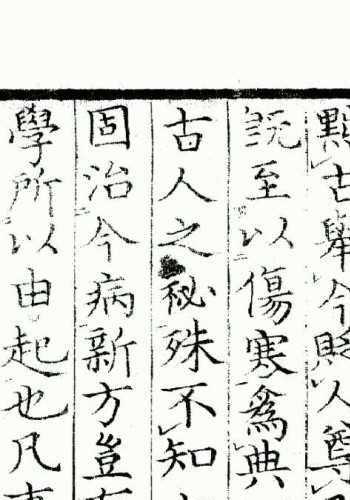 古舉今貶人尊
説至以傷寒爲典
古人之秘殊不知
固治今病新方豈
學所以由起也凡